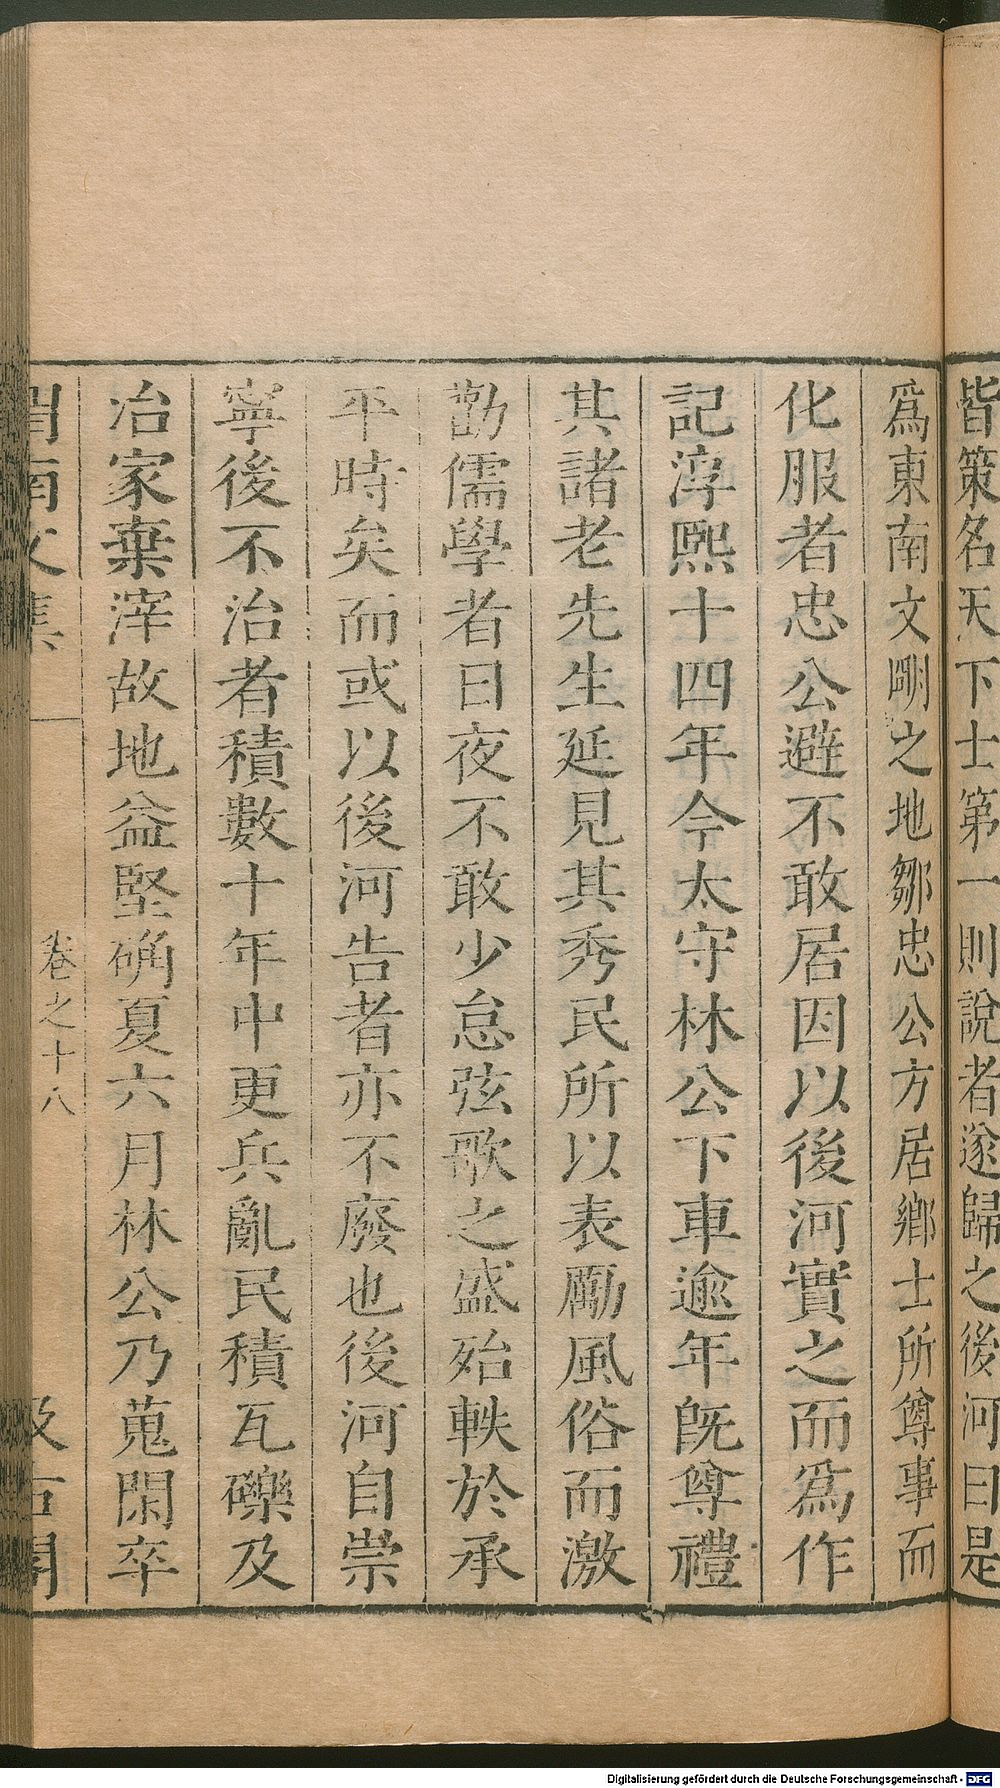 皆策名天下士第一則說者遂歸之後河曰是
爲東南文剛之地鄒忠公方居鄉士所尊事而
化服者忠公避不敢居因以後河實之而爲作
記淳熙十四年今太守林公下車逾年旣尊禮
其諸老先生延見其秀民所以表勵風俗而激
勸儒學者日夜不敢少怠弦歌之盛殆軼於承
平時矣而或以後河告者亦不廢也後河自崇
寧後不治者積數十年中更兵亂民積瓦礫及
冶家棄滓故地益堅确夏六月林公乃蒐閑卒
渭南文集
卷之十八
汲古閣
Digitalisierung gefördert durch die Deutsche Forschungsgemeinschaft - DFG